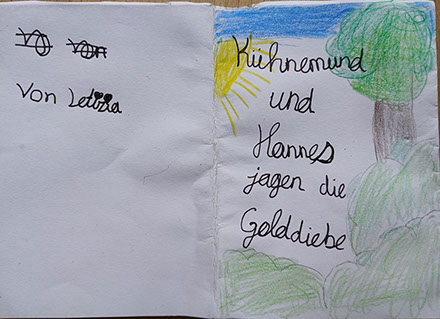 Von Letizia
Kühnemund
und
Hannes
jagen die
Golddiebe